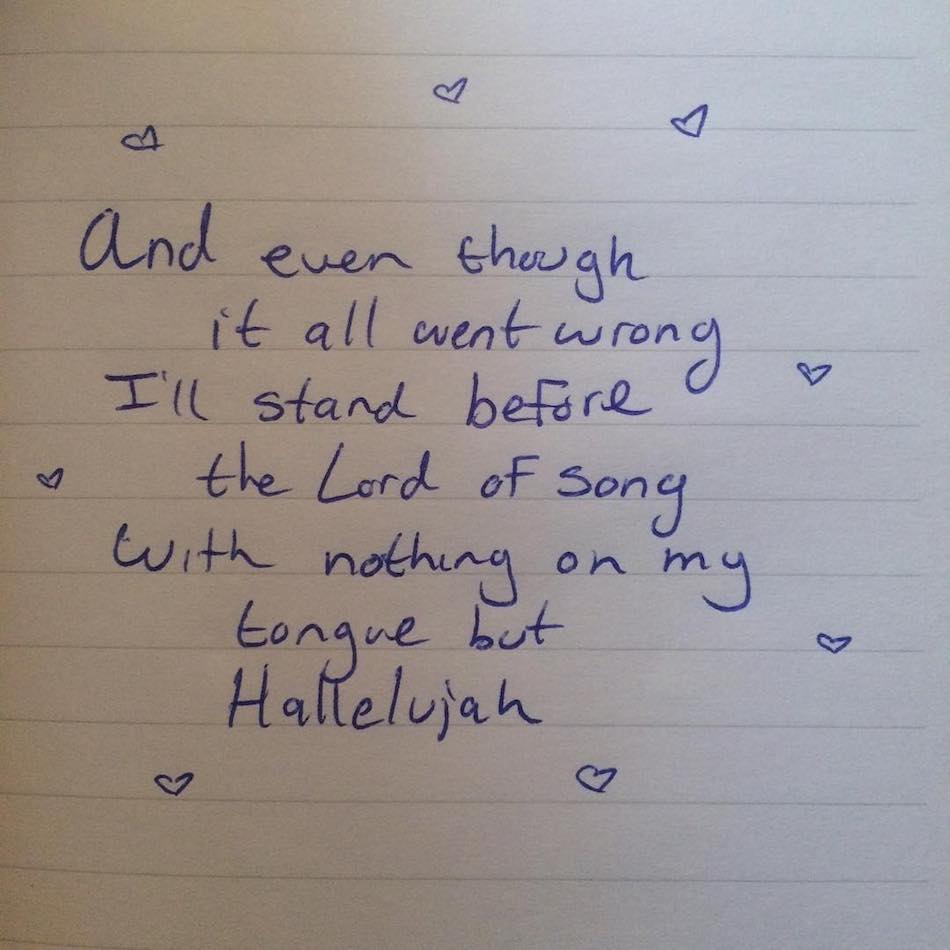 And even though
it all went wrong
I'll stand before
the Lord of song
With nothing on my
tongue but
Hallelujah